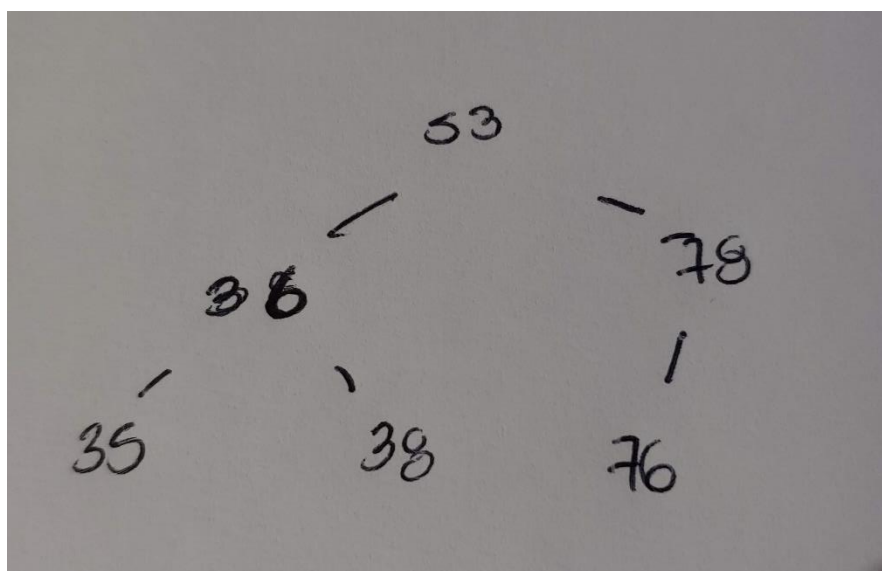 53
36 78
35 38 76